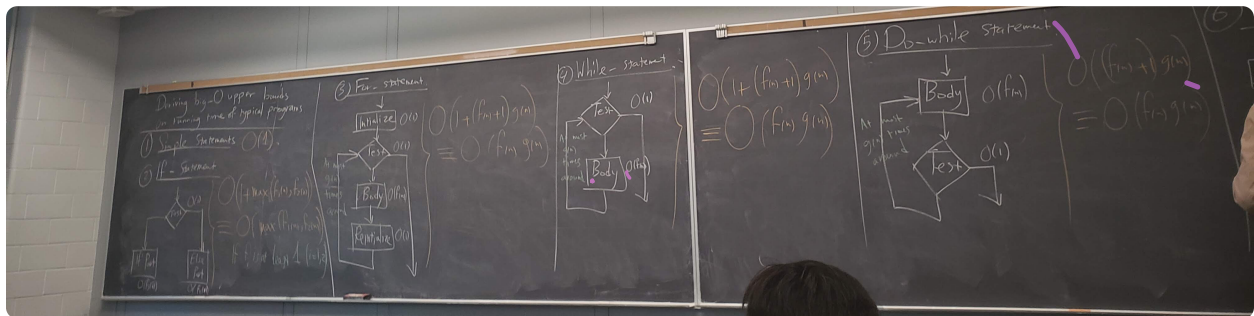 Deriving big-O upper bounds
on running time of typical programs
① Simple Statements O(1).
② If - Statement
Test
O(1)
If
Part
O(f₁(n))
Else
Part
O(f₂(n))
O(1+max(f₁(n), f₂(n)))
≡ O(max(f₁(n), f₂(n)))
③ For - statement
Initialize O(1)
Test O(1)
At most
g(n)
times
around
Body O(f(n))
Reinitialize O(1)
O(1+(f(n)+1) g(n))
≡ O(f(n) g(n))
④ While - statement
Test O(1)
At most
g(n)
times
around
Body O(f(n))
O(1+(f(n)+1) g(n))
≡ O(f(n) g(n))
⑤ Do-while statement
Body O(f(n))
At most
g(n) times
around
Test O(1)
O((f(n)+1) g(n))
≡ O(f(n) g(n))
⑥